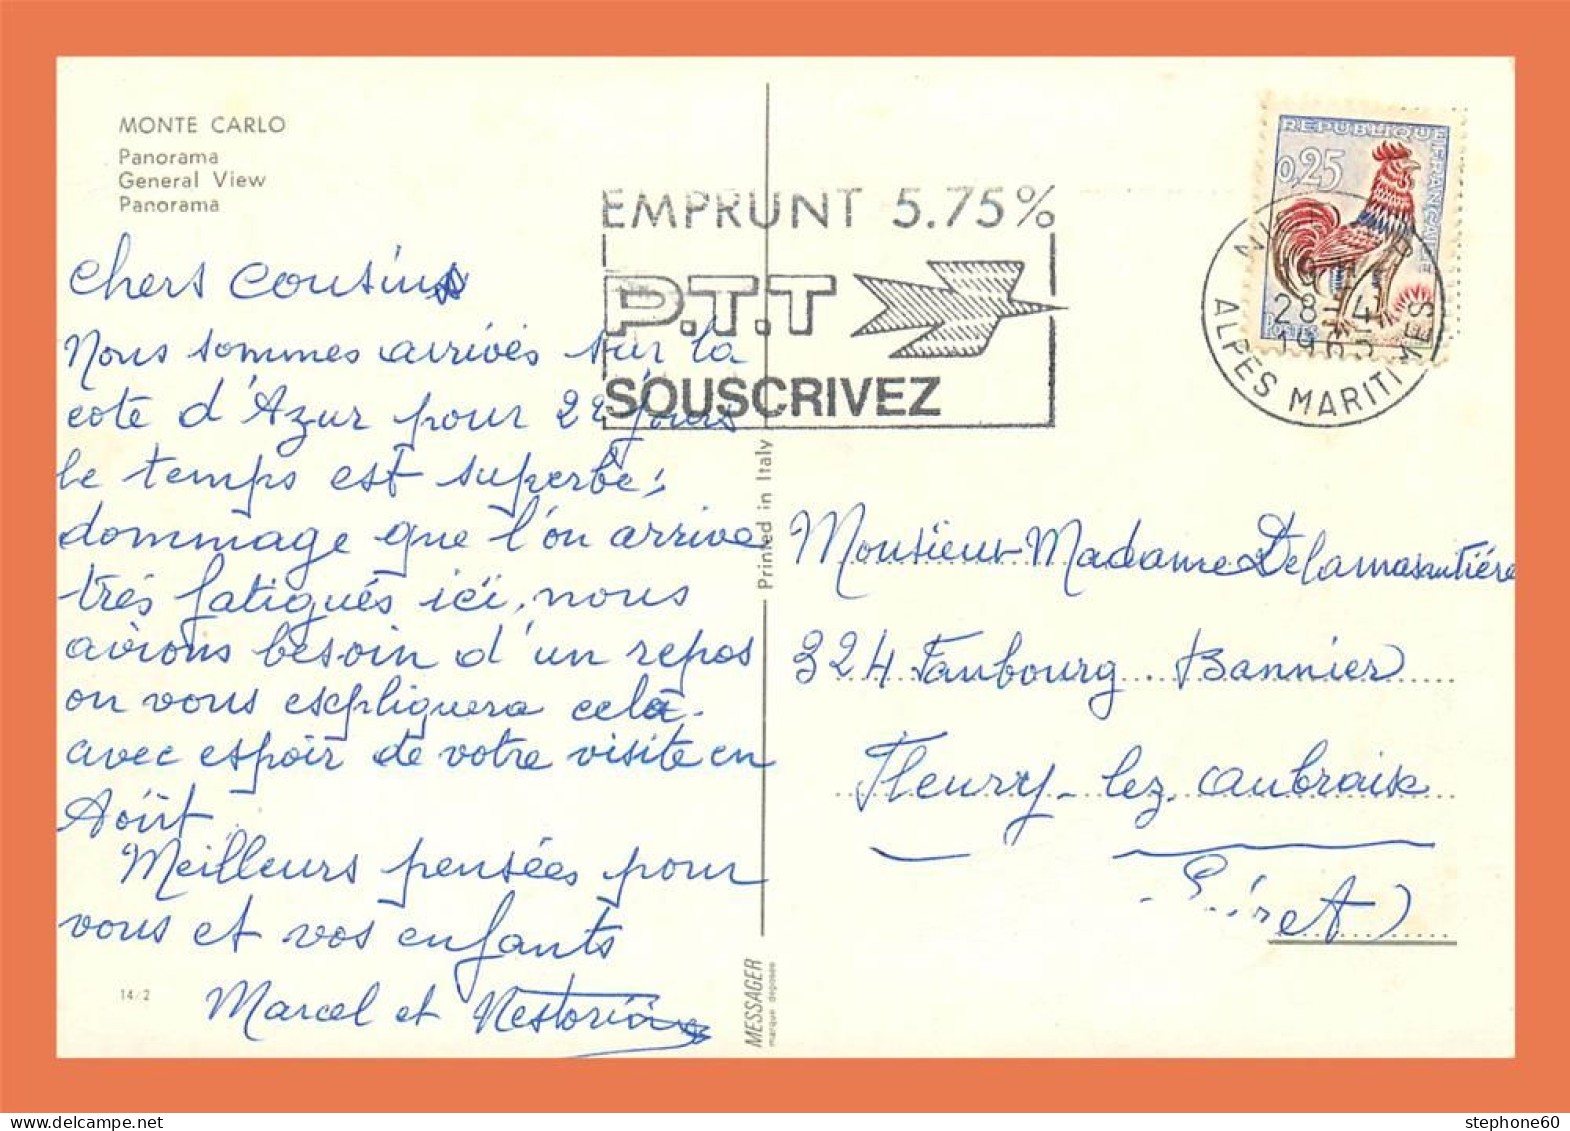 MONTE CARLO
Panorama
General View
Panorama
Chers Cousins
Nous sommes arrivés sur la
cote d'Azur pour 22 jours
le temps est superbe;
dommage que l'on arrive
trés fatigués ici, nous
avions besoin d'un repos
on vous expliquera celà.
avec espoir de votre visite en
Août
Meilleurs pensées pour
vous et vos enfants
Marcel et
14/2
EMPRUNT 5.75%
P.T.T
SOUSCRIVEZ
Printed in Italy
MESSAGER
marque déposée
REPUBLIQUE FRANÇAISE
0,25
POSTES
28-4
ALPES MARITIMES
Monsieur Madame Delamasantiére
324 Faubourg Bannier
Fleury-lez Aubraix
Loiret)
stephone60